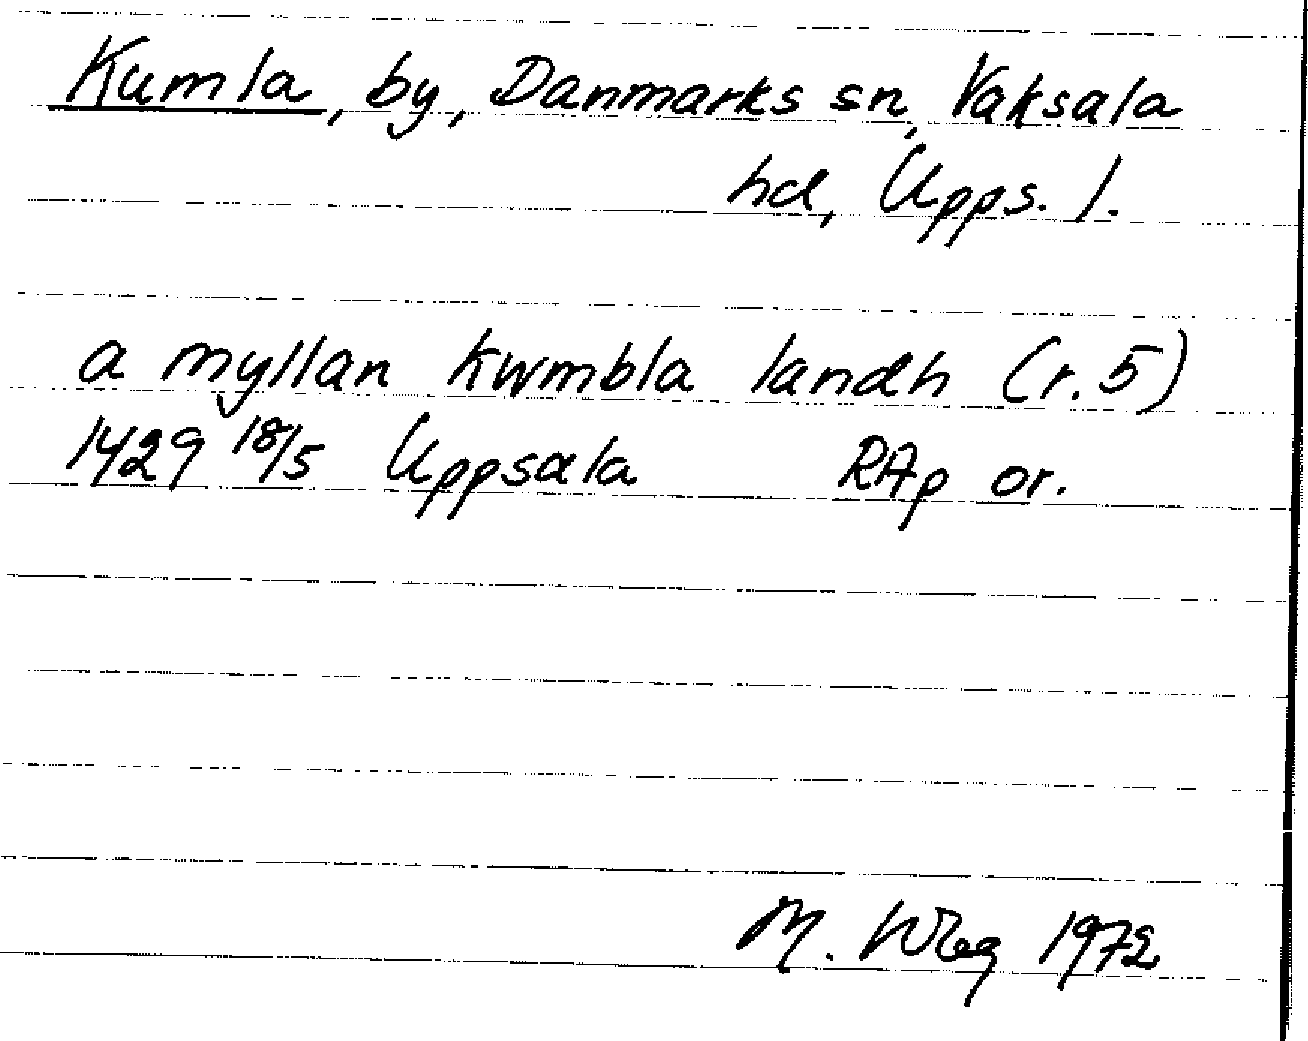 Kumla, by, Danmarks sn, Vaksala
hd, Upps. l.
a myllan kwmbla landh (r. 5)
1429 18/5 Uppsala RAp or.
M. 1972